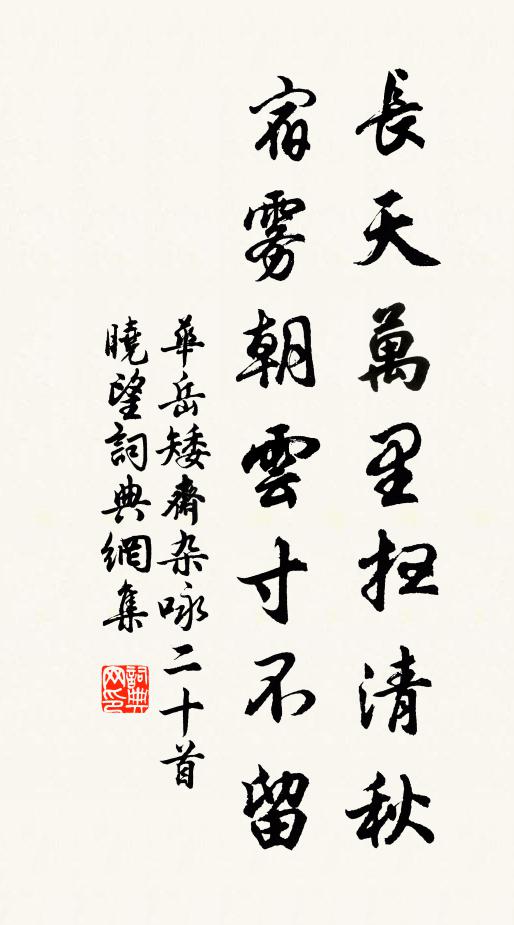 長天萬里扫清秋
宿雾朝雲寸不留
華岳矮齋杂咏二十首
曉望詞典網集
詞典
网印